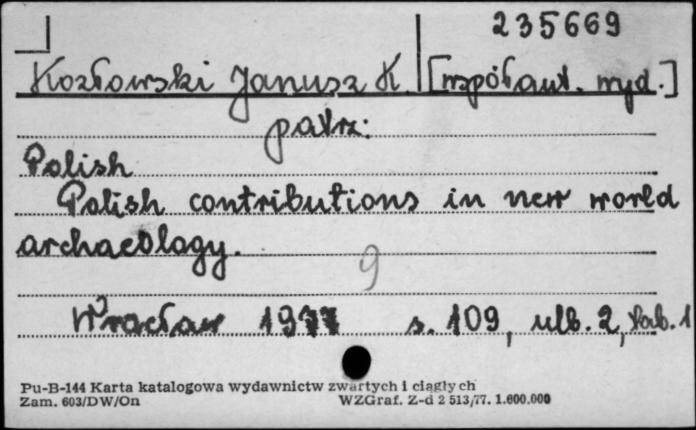 235669
Kozłowski Janusz K. [współaut. wyd.]
patrz:
Polish
Polish contributions in new world
archaeology.
9
Wrocław 1977 s. 109, ulb. 2, tab. 1
Pu-B-144 Karta katalogowa wydawnictw zwartych i ciągłych
Zam. 603/DW/On WZGraf. Z-d 2 513/77. 1.000.000